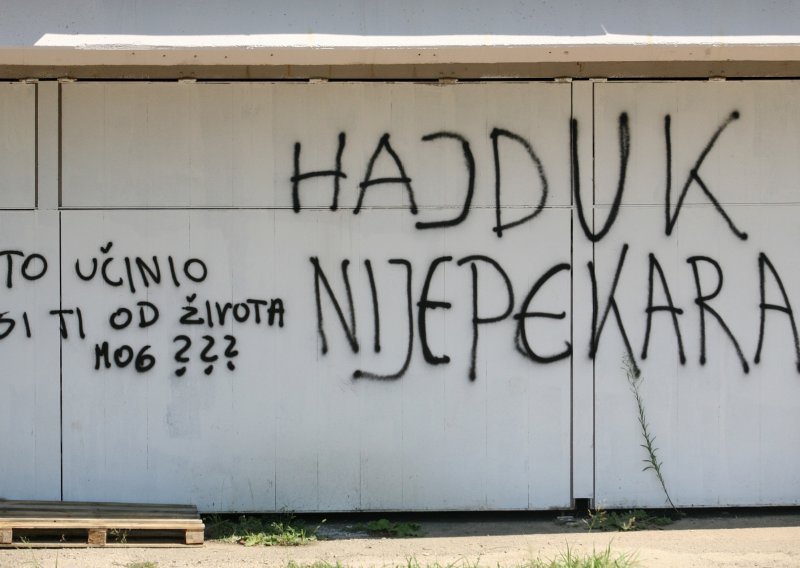 TO UČINIO
SI TI OD ŽIVOTA
MOG ???
HAJDUK
NIJE PEKARA